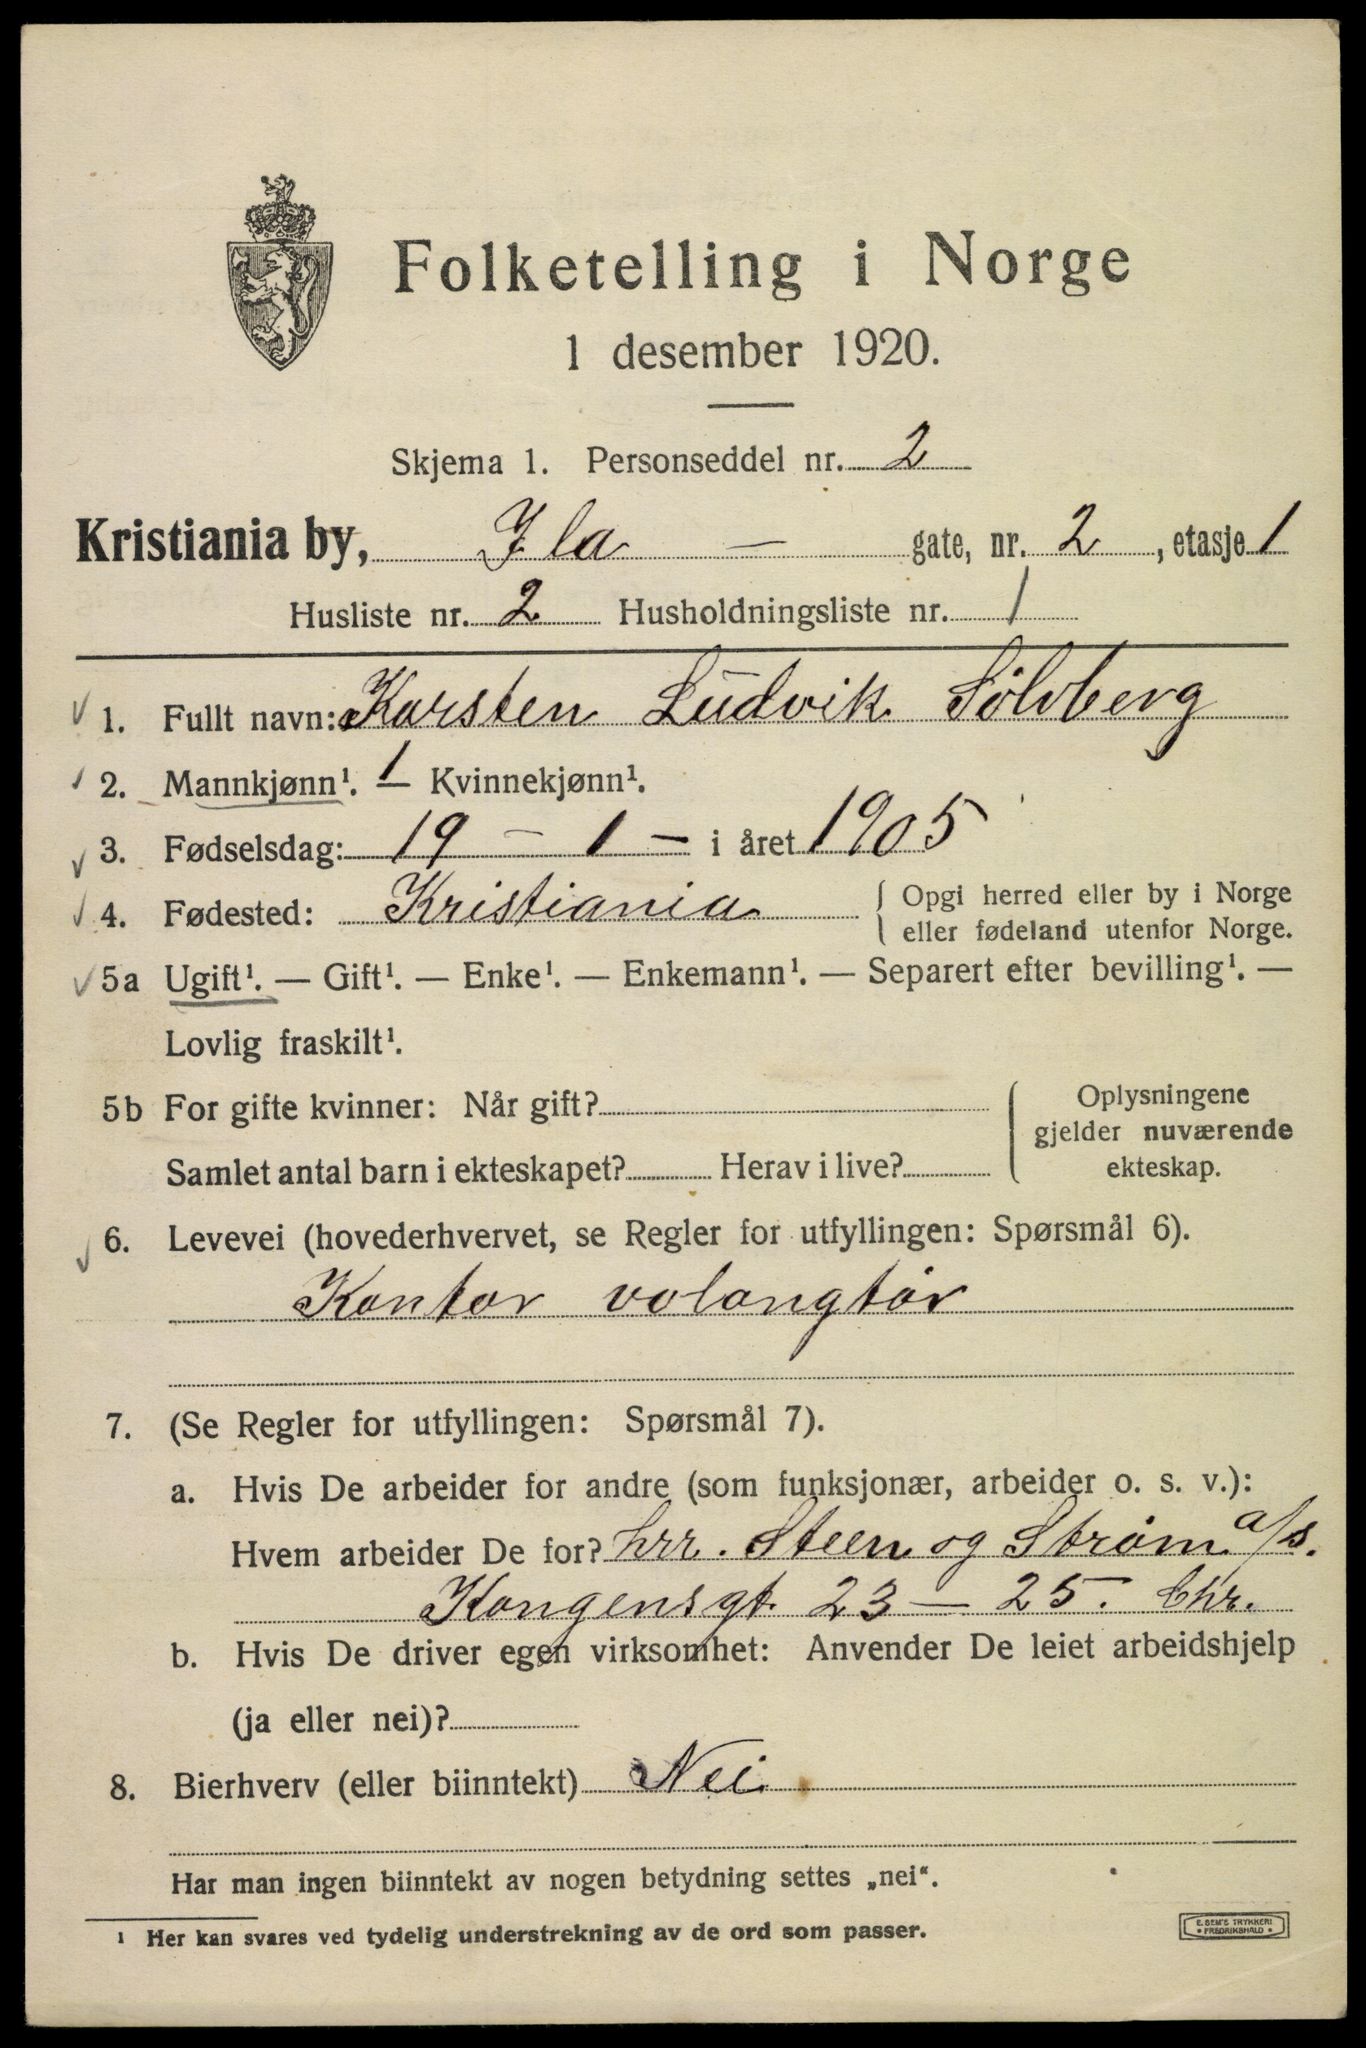 Folketelling i Norge
1 desember 1920.
Skjema 1. Personseddel nr. 2
Kristiania by, Ila — gate, nr. 2, etasje 1
Husliste nr. 2 Husholdningsliste nr. 1
1. Fullt navn: Karsten Ludvik Sölvberg
2. Mannkjønn¹. 1 — Kvinnekjønn¹.
3. Fødselsdag: 19 – 1 – i året 1905
4. Fødested: Kristiania { Opgi herred eller by i Norge
eller fødeland utenfor Norge.
5a Ugift¹. — Gift¹. — Enke¹. — Enkemann¹. — Separert efter bevilling¹. —
Lovlig fraskilt¹.
5b For gifte kvinner: Når gift?
Samlet antal barn i ekteskapet? Herav i live?
Oplysningene
gjelder nuværende
ekteskap.
6. Levevei (hovederhvervet, se Regler for utfyllingen: Spørsmål 6).
Kontor volangtör
7. (Se Regler for utfyllingen: Spørsmål 7).
a. Hvis De arbeider for andre (som funksjonær, arbeider o. s. v.):
Hvem arbeider De for? hrr. Steen og Strøm a/s.
Kongensgt. 23 – 25. Chr.
b. Hvis De driver egen virksomhet: Anvender De leiet arbeidshjelp
(ja eller nei)?
8. Bierhverv (eller biinntekt) Nei
Har man ingen biinntekt av nogen betydning settes „nei“.
¹ Her kan svares ved tydelig understrekning av de ord som passer.
E. SEM'S TRYKKERI
• FREDRIKSHALD •